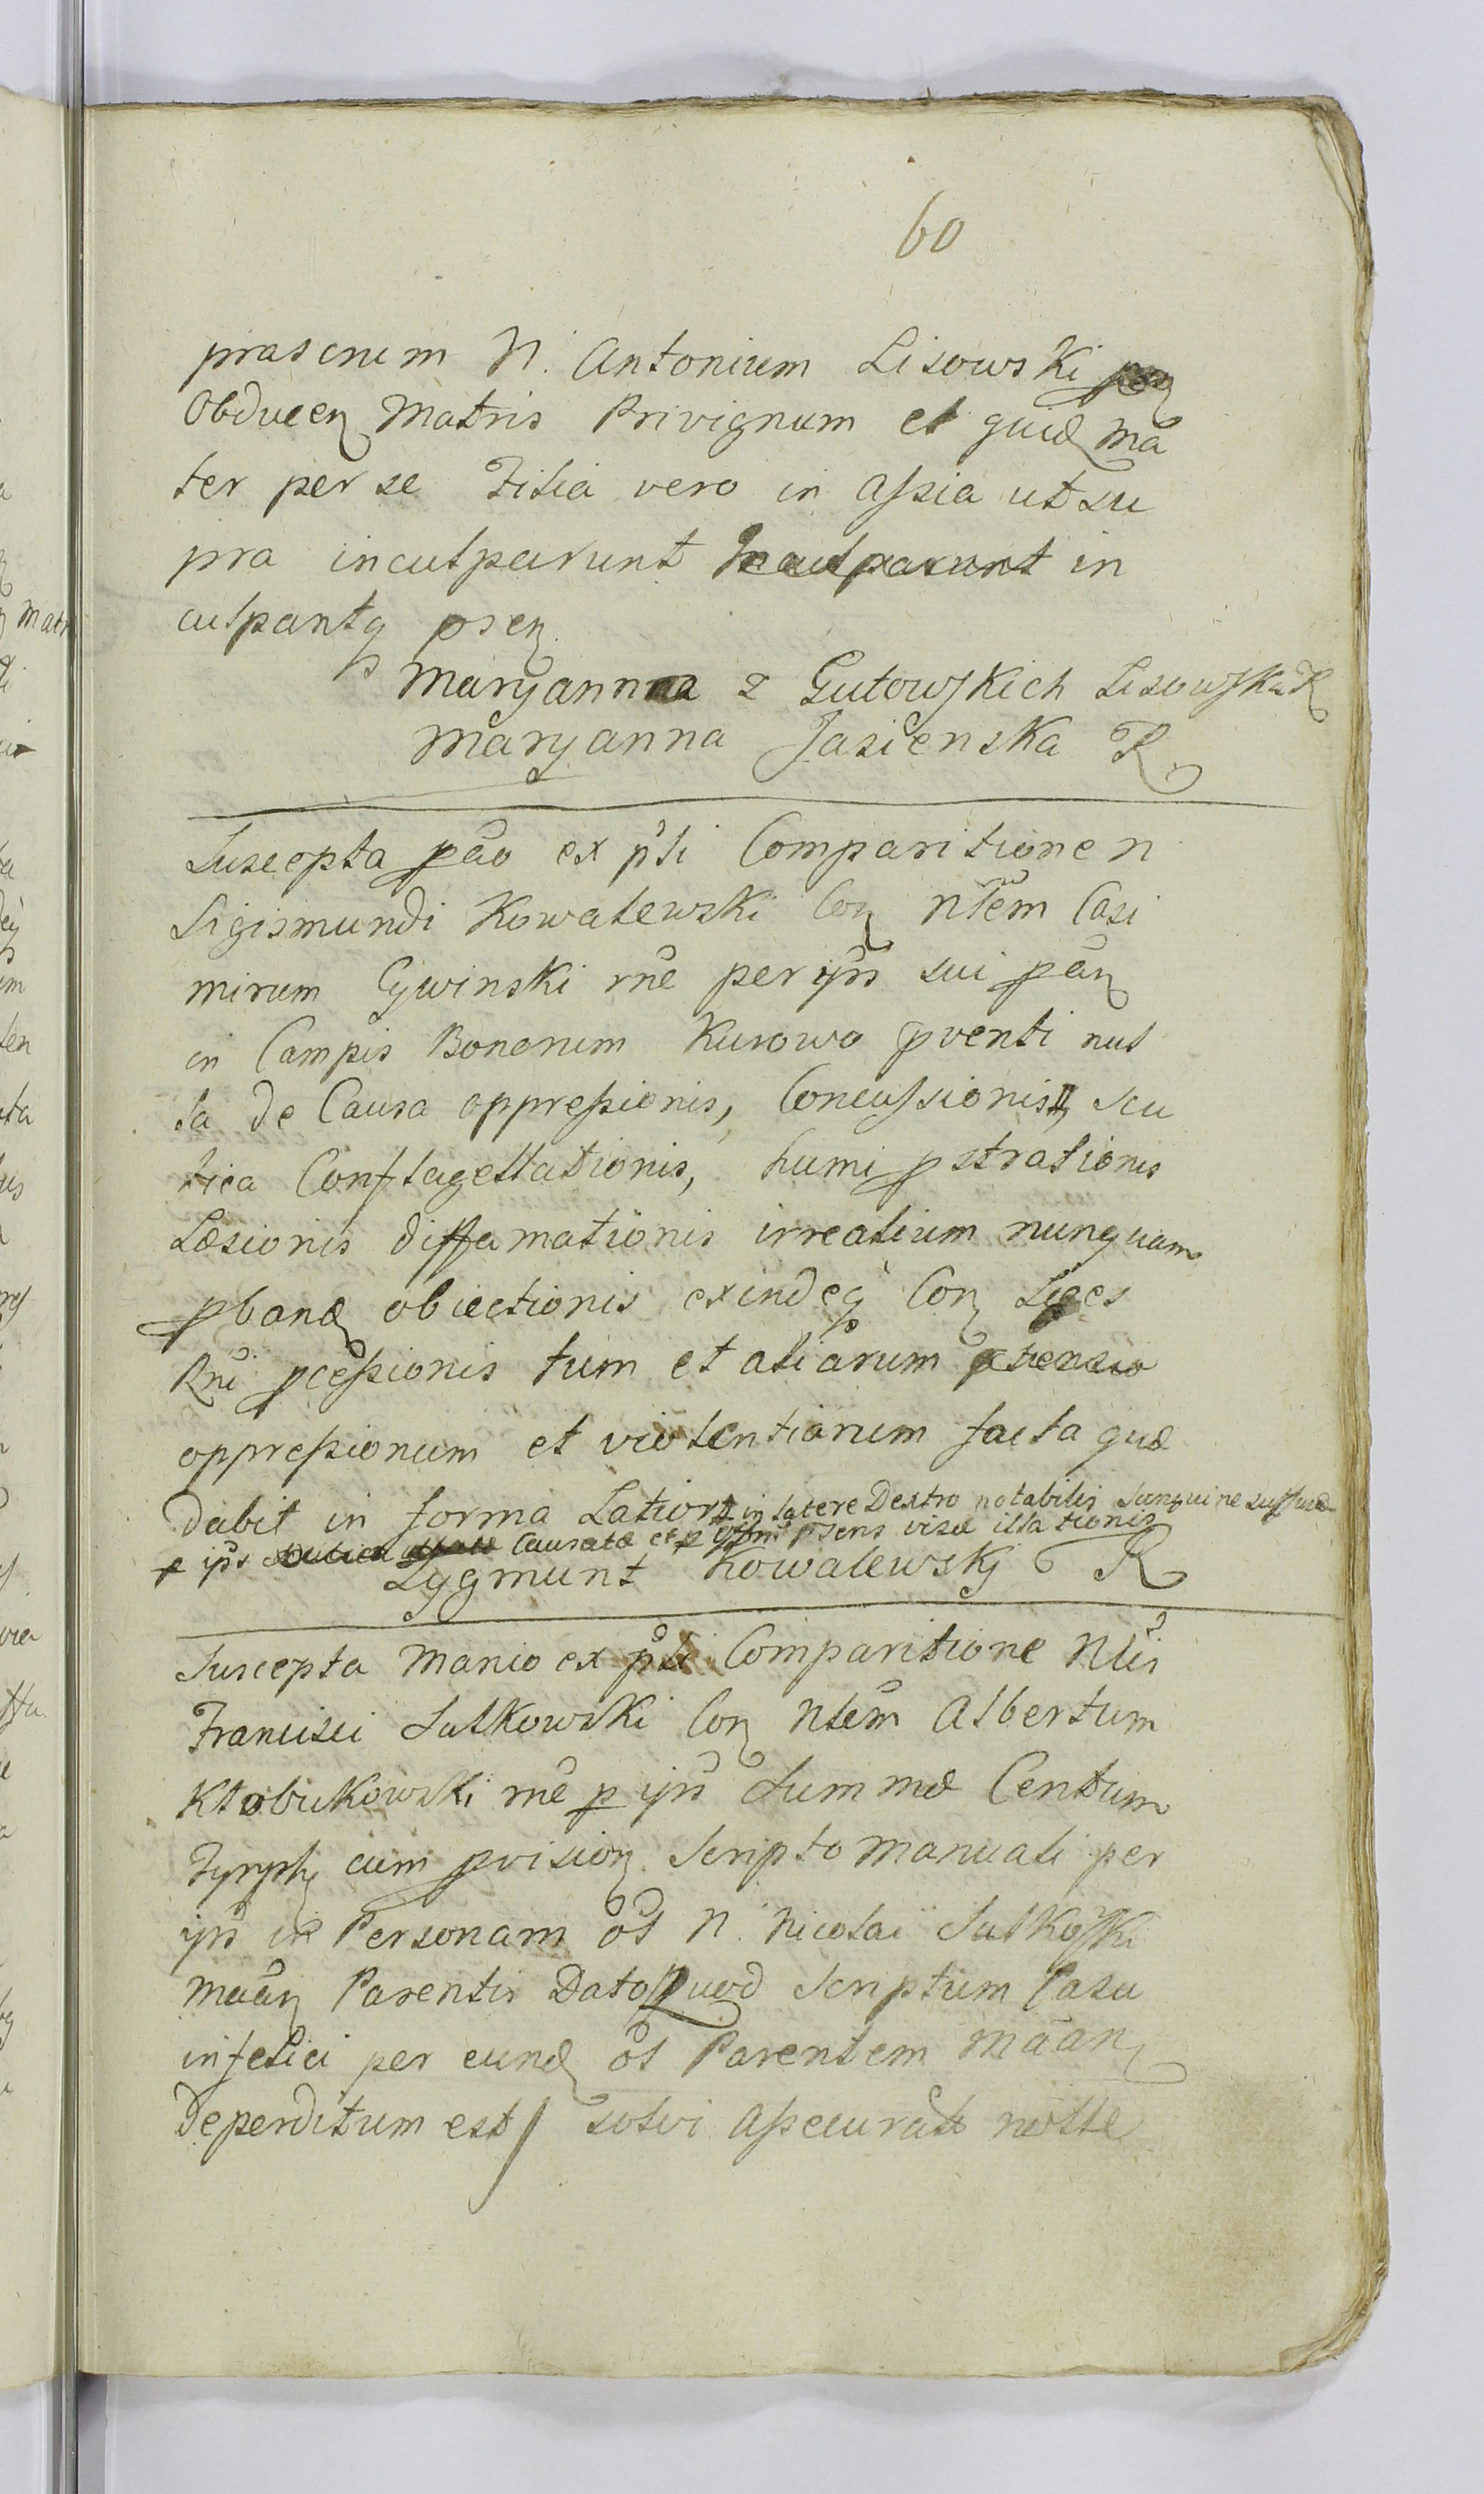 60
prascrium N. Antonium Lisowski
Obducen Matris Privignum et quid ma
ter per se Filia vero in assia ut su
pra inculparunt in
culpantq psen
Maryanna z Gutowskich Lisowska R
Maryanna Jasienska R
Suscepta pao ex psti Comparitione N
Sigismundi Kowalewski Con Nlem Casi
mirum Cywinski rne per ips sui pan
in Campis Bonorum Kurowo pventi nul
la de Causa oppressionis, Concussionis, scu
tica Conflagellationis, humi pstrationis
Læsionis diffamationis irrealium nunquam
pband obiectionis exindeq Con Leges
Rni pcessionis tum et aliarum
oppressionum et violentiarum facta quæ
dabit in forma Latiori in latere Dextro notabilis sanguine suffusæ
p ips Causatæ et p psens visæ illationis
Zygmunt Kowalewskj R
Suscepta Manio ex psti Comparitione Nlis
Francisci Sutkowski Con Nlem Albertum
Kłobukowski rne p ips Summæ Centum
Tymph cum pvision Scripto Manuali per
ips in Personam ol N. Nicolai Sutkoski
Maan Parentis Dato Quod Scriptum Casu
infelici per eund ol Parentem Maan
Deperditum est solvi assecurate nolle